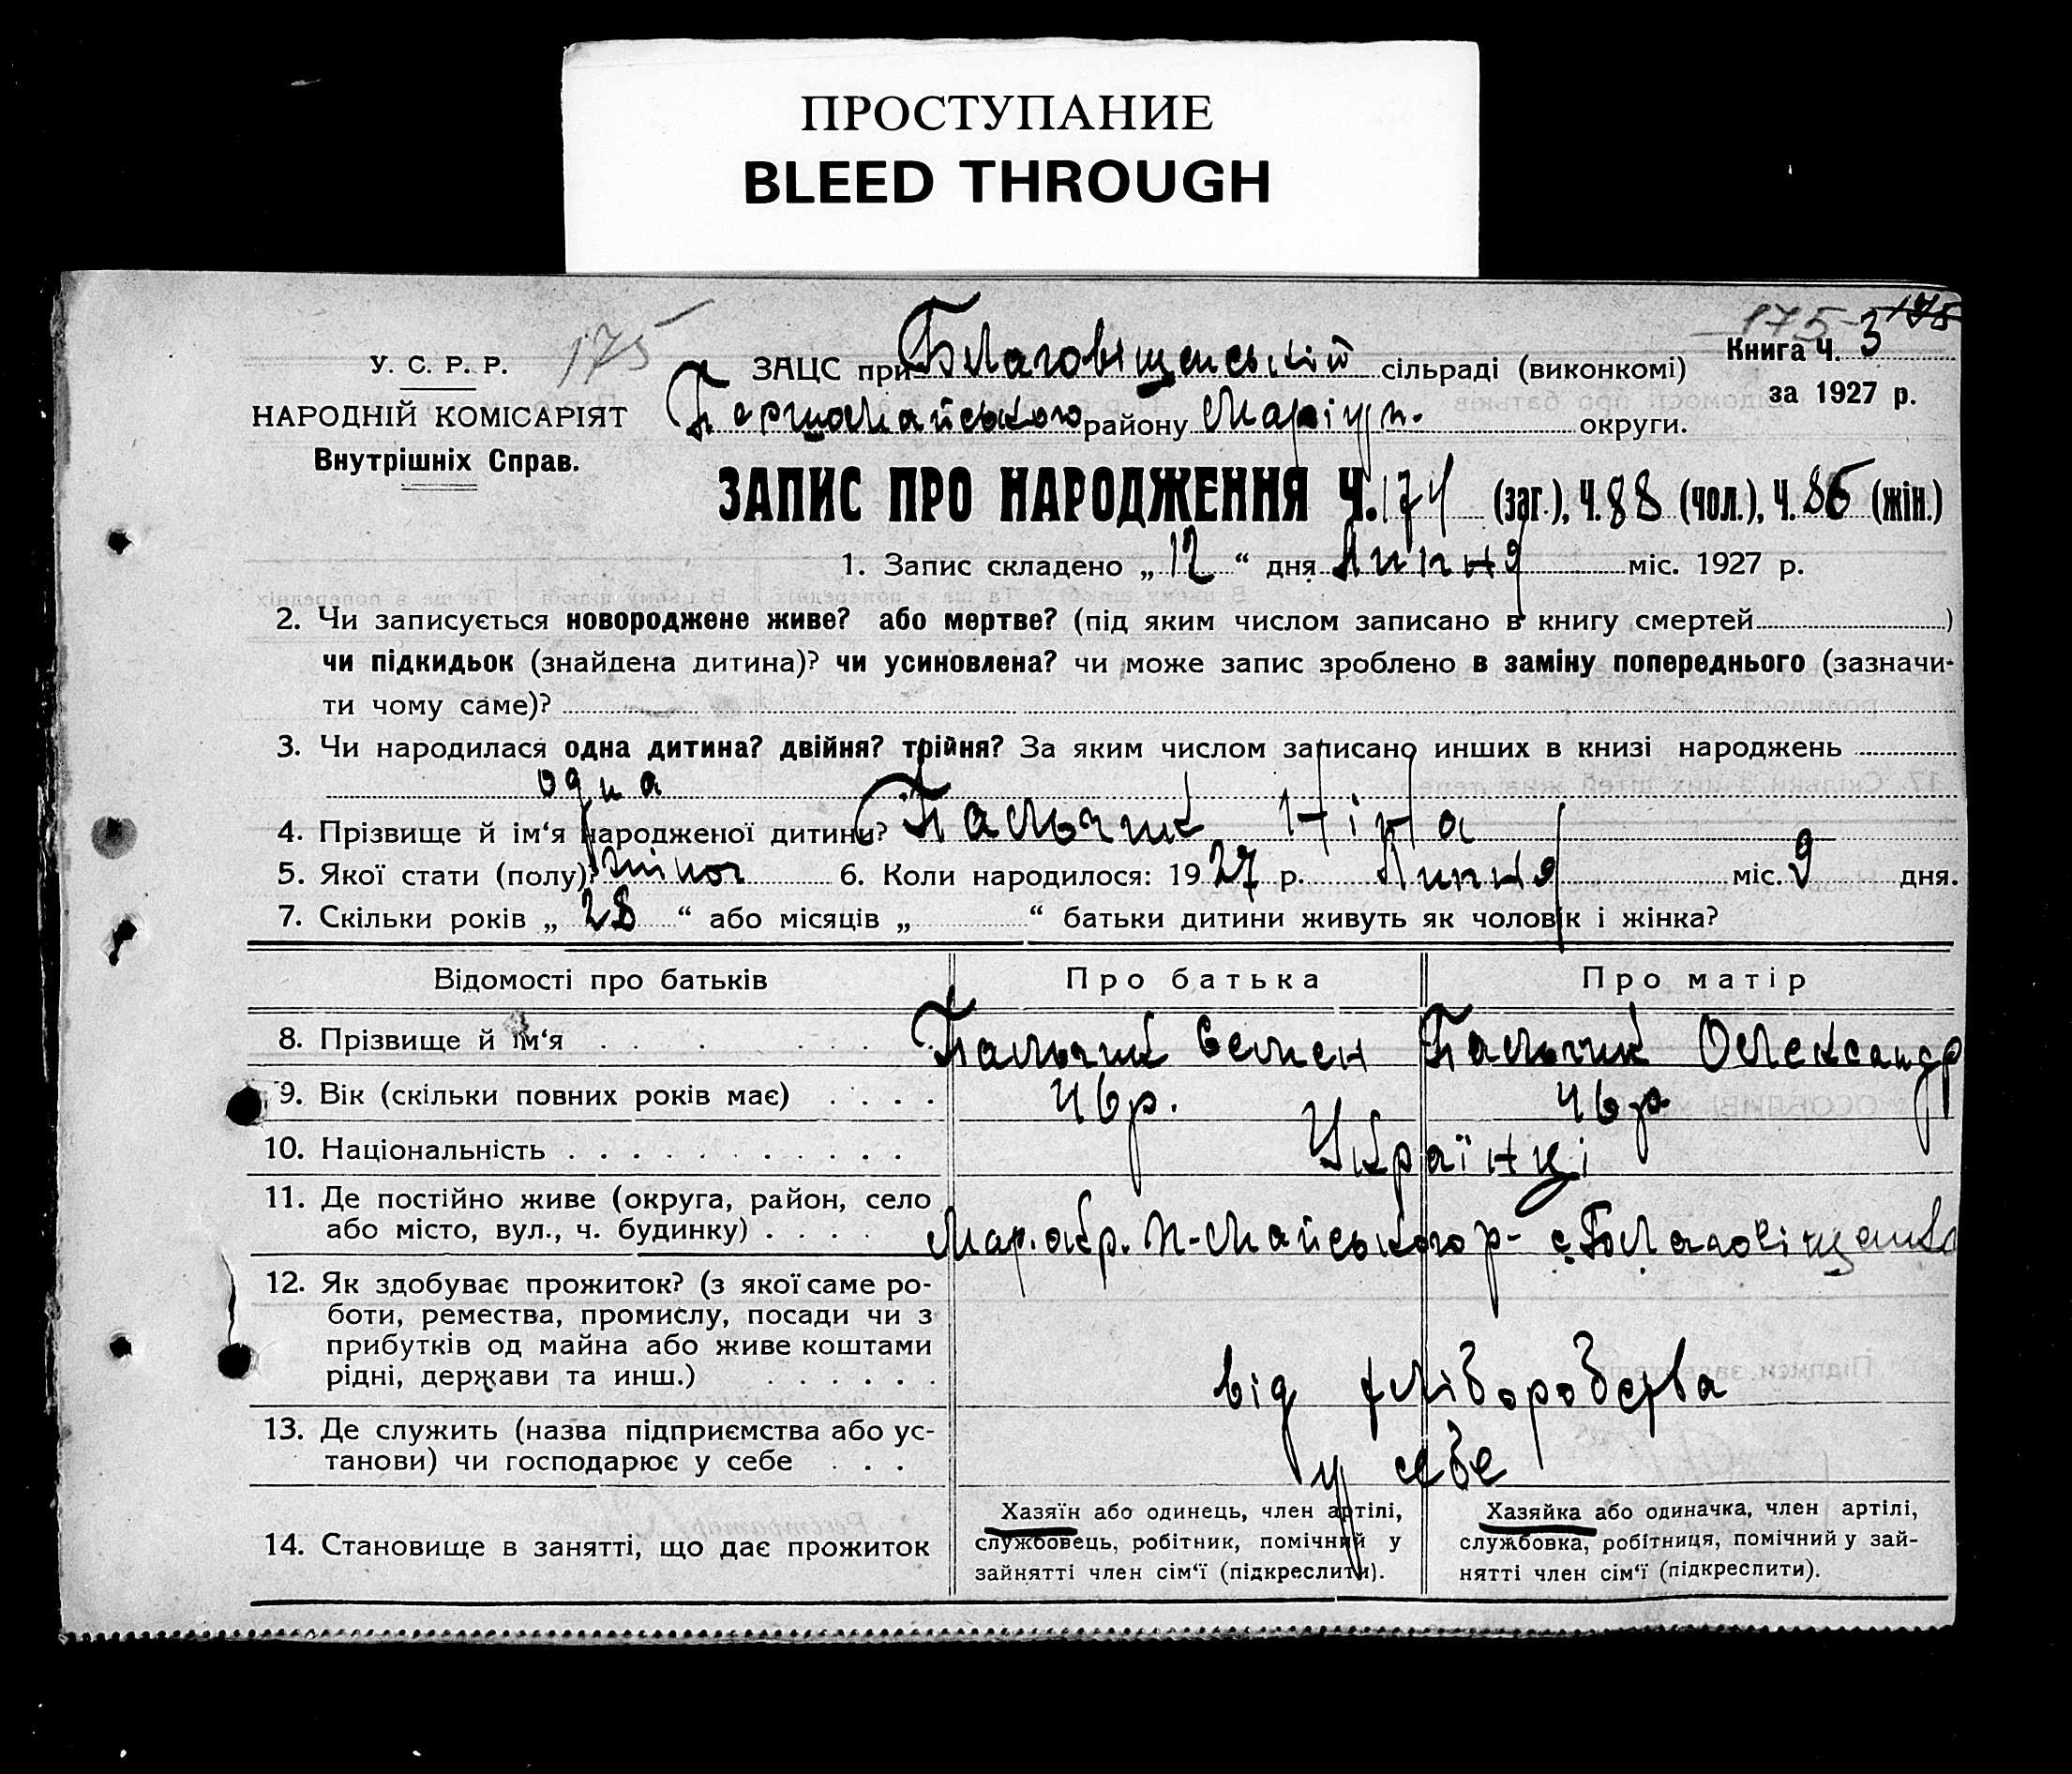 ПРОСТУПАНИЕ
BLEED THROUGH
175 175
У. С. Р. Р.
175
ЗАЦС при Благовіщенській сільраді (виконкомі)
Книга Ч. 3
НАРОДНІЙ КОМІСАРІЯТ
Першомайського району Маріуп. округи.
за 1927 р.
Внутрішніх Справ.
ЗАПИС ПРО НАРОДЖЕННЯ Ч. 174 (заг.), Ч. 88 (чол.), Ч. 86 (жін.)
1. Запис складено „ 12 “ дня Липня міс. 1927 р.
2. Чи записується новороджене живе? або мертве? (під яким числом записано в книгу смертей )
чи підкидьок (знайдена дитина)? чи усиновлена? чи може запис зроблено в заміну попереднього (зазначи-
ти чому саме)?
3. Чи народилася одна дитина? двійня? трійня? За яким числом записано инших в книзі народжень
одна
4. Прізвище й ім‘я народженої дитини? Пальчик Ніна
5. Якої стати (полу)? жіноч 6. Коли народилося: 1927 р. Липня міс. 9 дня.
7. Скільки років „ 28 “ або місяців „ “ батьки дитини живуть як чоловік і жінка?
Відомості про батьків Про батька Про матір
8. Прізвище й ім‘я Пальчик Семен Пальчик Олександр
9. Вік (скільки повних років має) 46 р. 46 р.
10. Національність Українці
11. Де постійно живе (округа, район, село
або місто, вул., ч. будинку) Мар. окр. П-Майського р- с. Благовіщенка
12. Як здобуває прожиток? (з якої саме ро-
боти, ремества, промислу, посади чи з
прибутків од майна або живе коштами
рідні, держави та инш.) від хліборобства
13. Де служить (назва підприємства або ус-
танови) чи господарює у себе у себе
14. Становище в занятті, що дає прожиток
Хазяїн або одинець, член артілі,
службовець, робітник, помічний у
зайнятті член сім‘ї (підкреслити).
Хазяйка або одиначка, член артілі,
службовка, робітниця, помічний у зай-
нятті член сім‘ї (підкреслити).